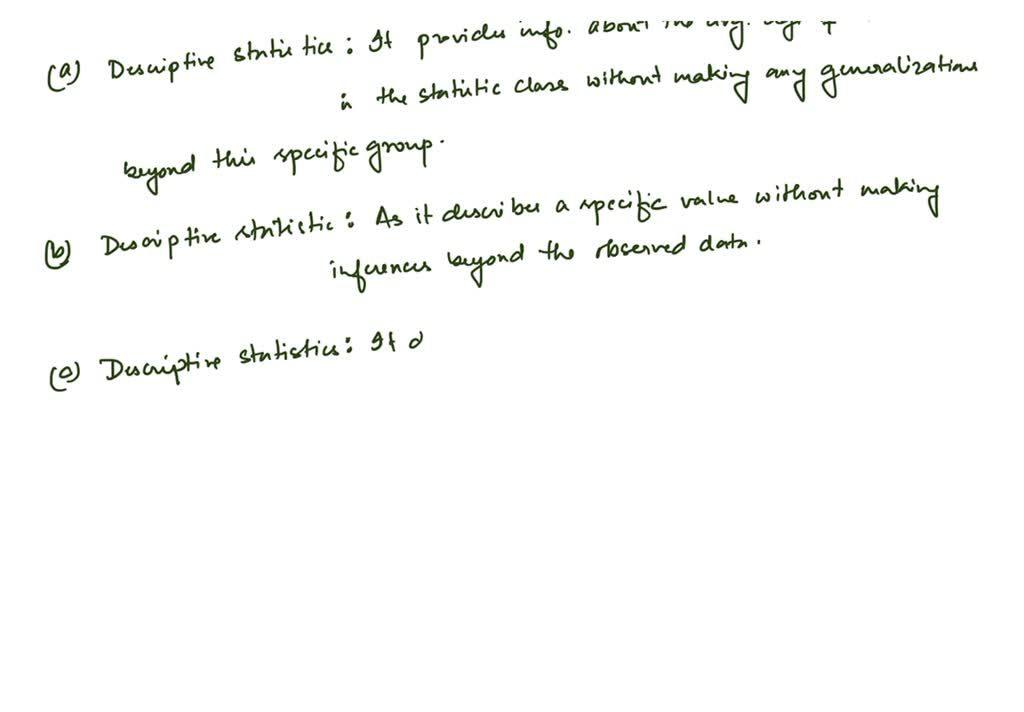 (a) Descriptive statistics: It provides info. about the avg.
in the statistic class without making any generalizations
beyond this specific group.
(b) Descriptive statistic: As it describes a specific value without making
inferences beyond the observed data.
(c) Descriptive statistics: It d